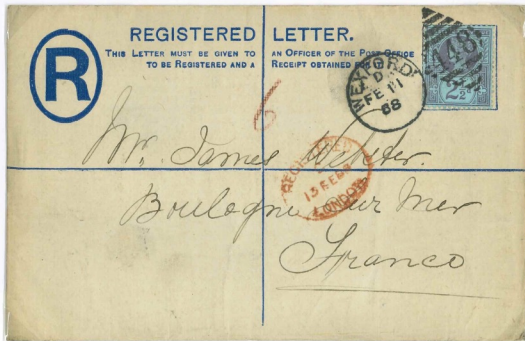 REGISTERED LETTER.
THIS LETTER MUST BE GIVEN TO AN OFFICER OF THE POST OFFICE
TO BE REGISTERED AND A RECEIPT OBTAINED FOR IT
R
WEXFORD
D
FE 11
88
448
2½
6
REGISTERED
13 FE 88
LONDON
Mr. James Webster.
Boulogne sur Mer
France